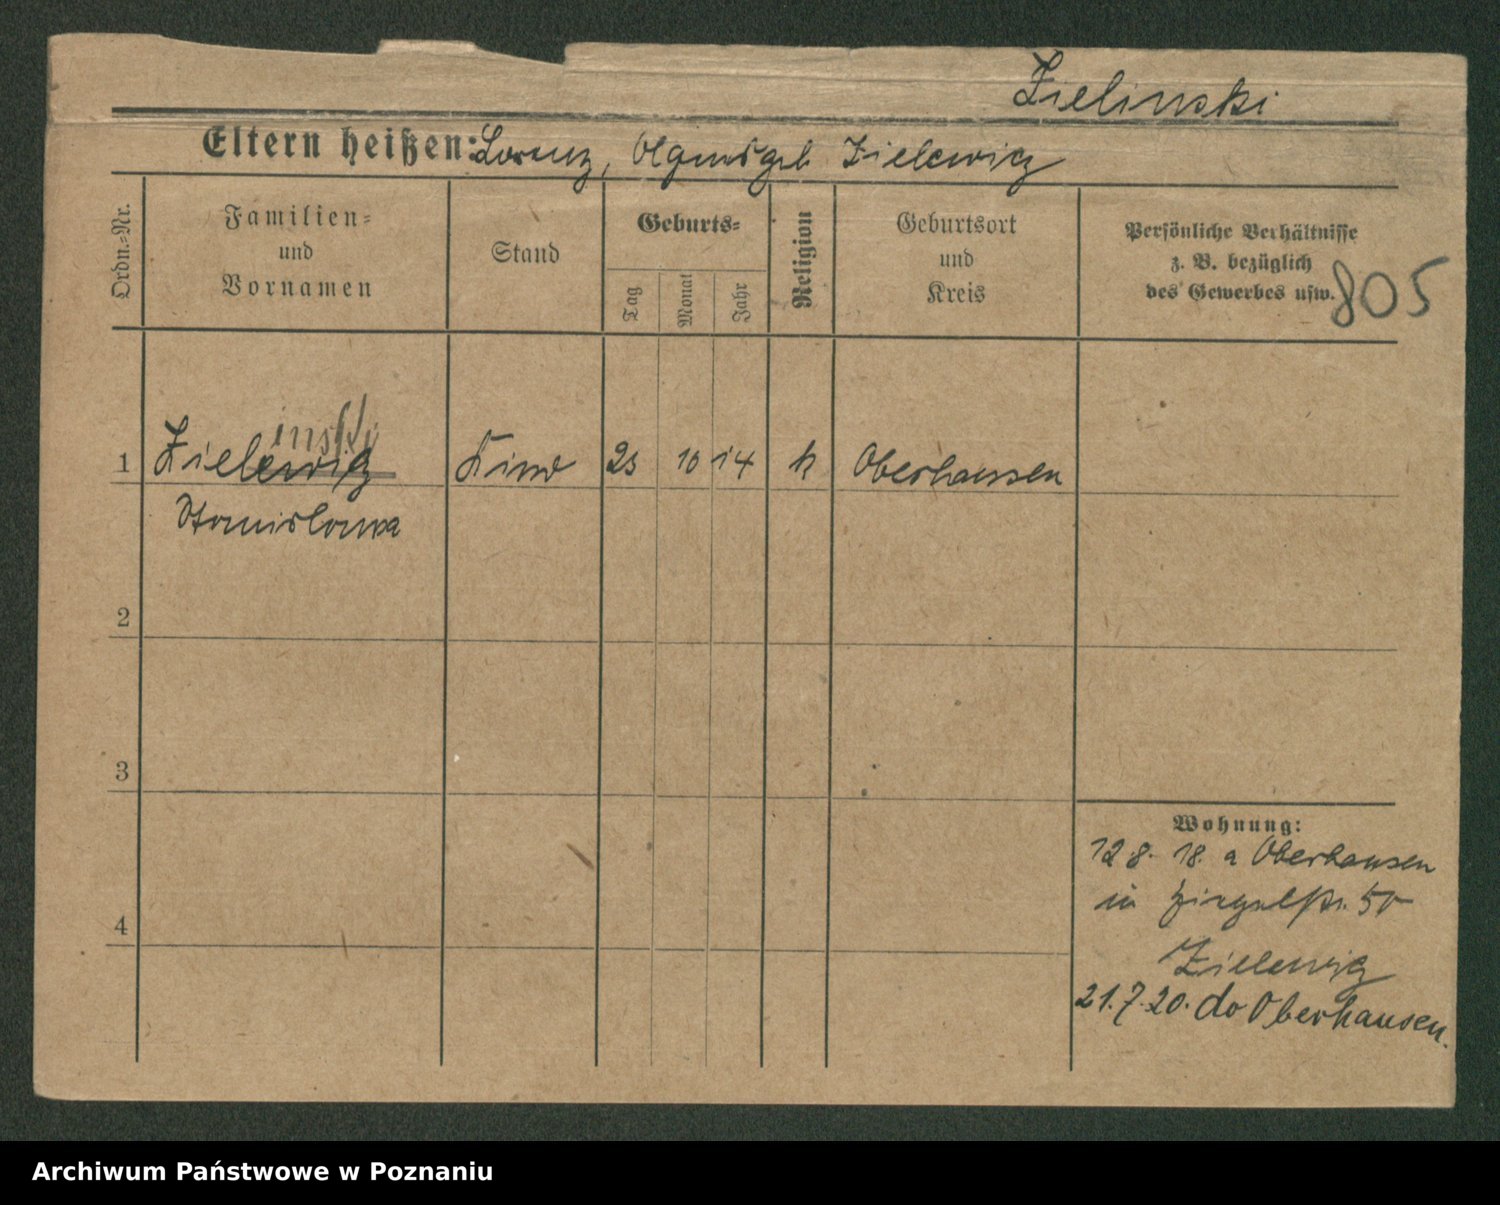 Zielinski
Eltern heißen: Lorenz, geb Zielewicz
Ordn.=Nr.
Familien=
und
Vornamen
Stand
Geburts=
Tag
Monat
Jahr
Religion
Geburtsort
und
Kreis
Persönliche Verhältnisse
z. B. bezüglich
des Gewerbes usw.
805
inski
1 Zielewicz Kind 23 10 14 k Oberhausen
Stanislawa
2
3
4
Wohnung:
12.8. 18. a Oberhausen
in Ziegelstr. 50
Zielewicz
21.7.20. do Oberhausen.
Archiwum Państwowe w Poznaniu